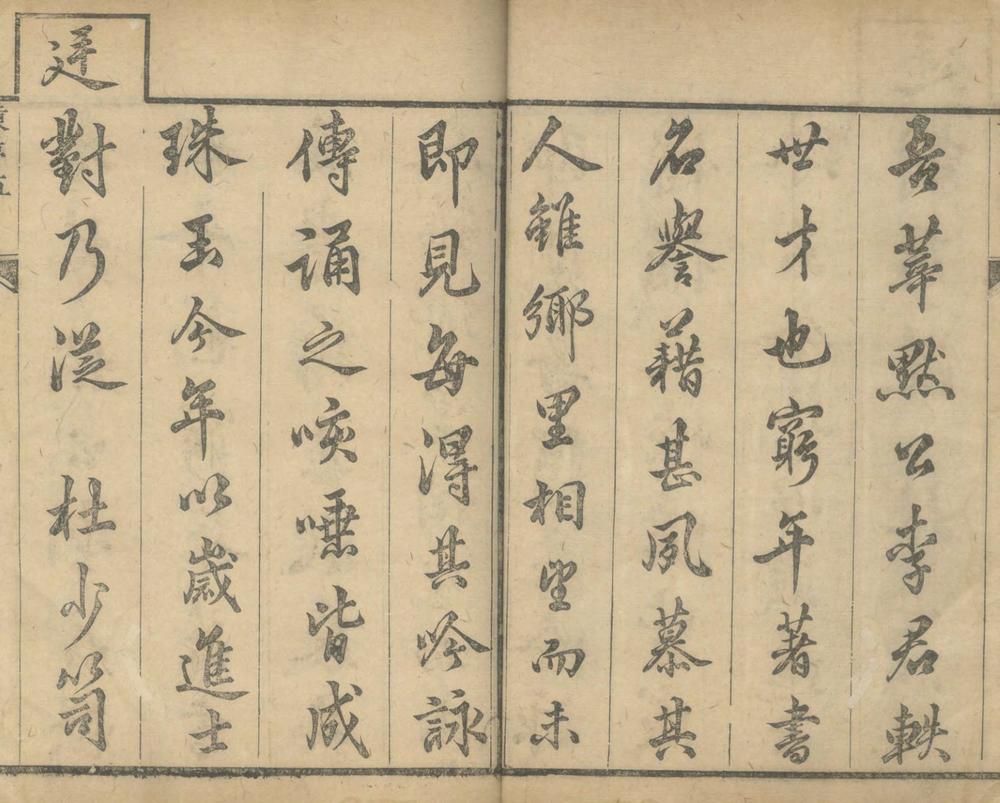 吾莘默公李君軼
世才也窮年著書
名譽藉甚夙慕其
人雖鄉里相望而未
即見每得其吟詠
傳誦之咳唾皆成
珠玉今年以歲進士
廷
對乃從杜少笥